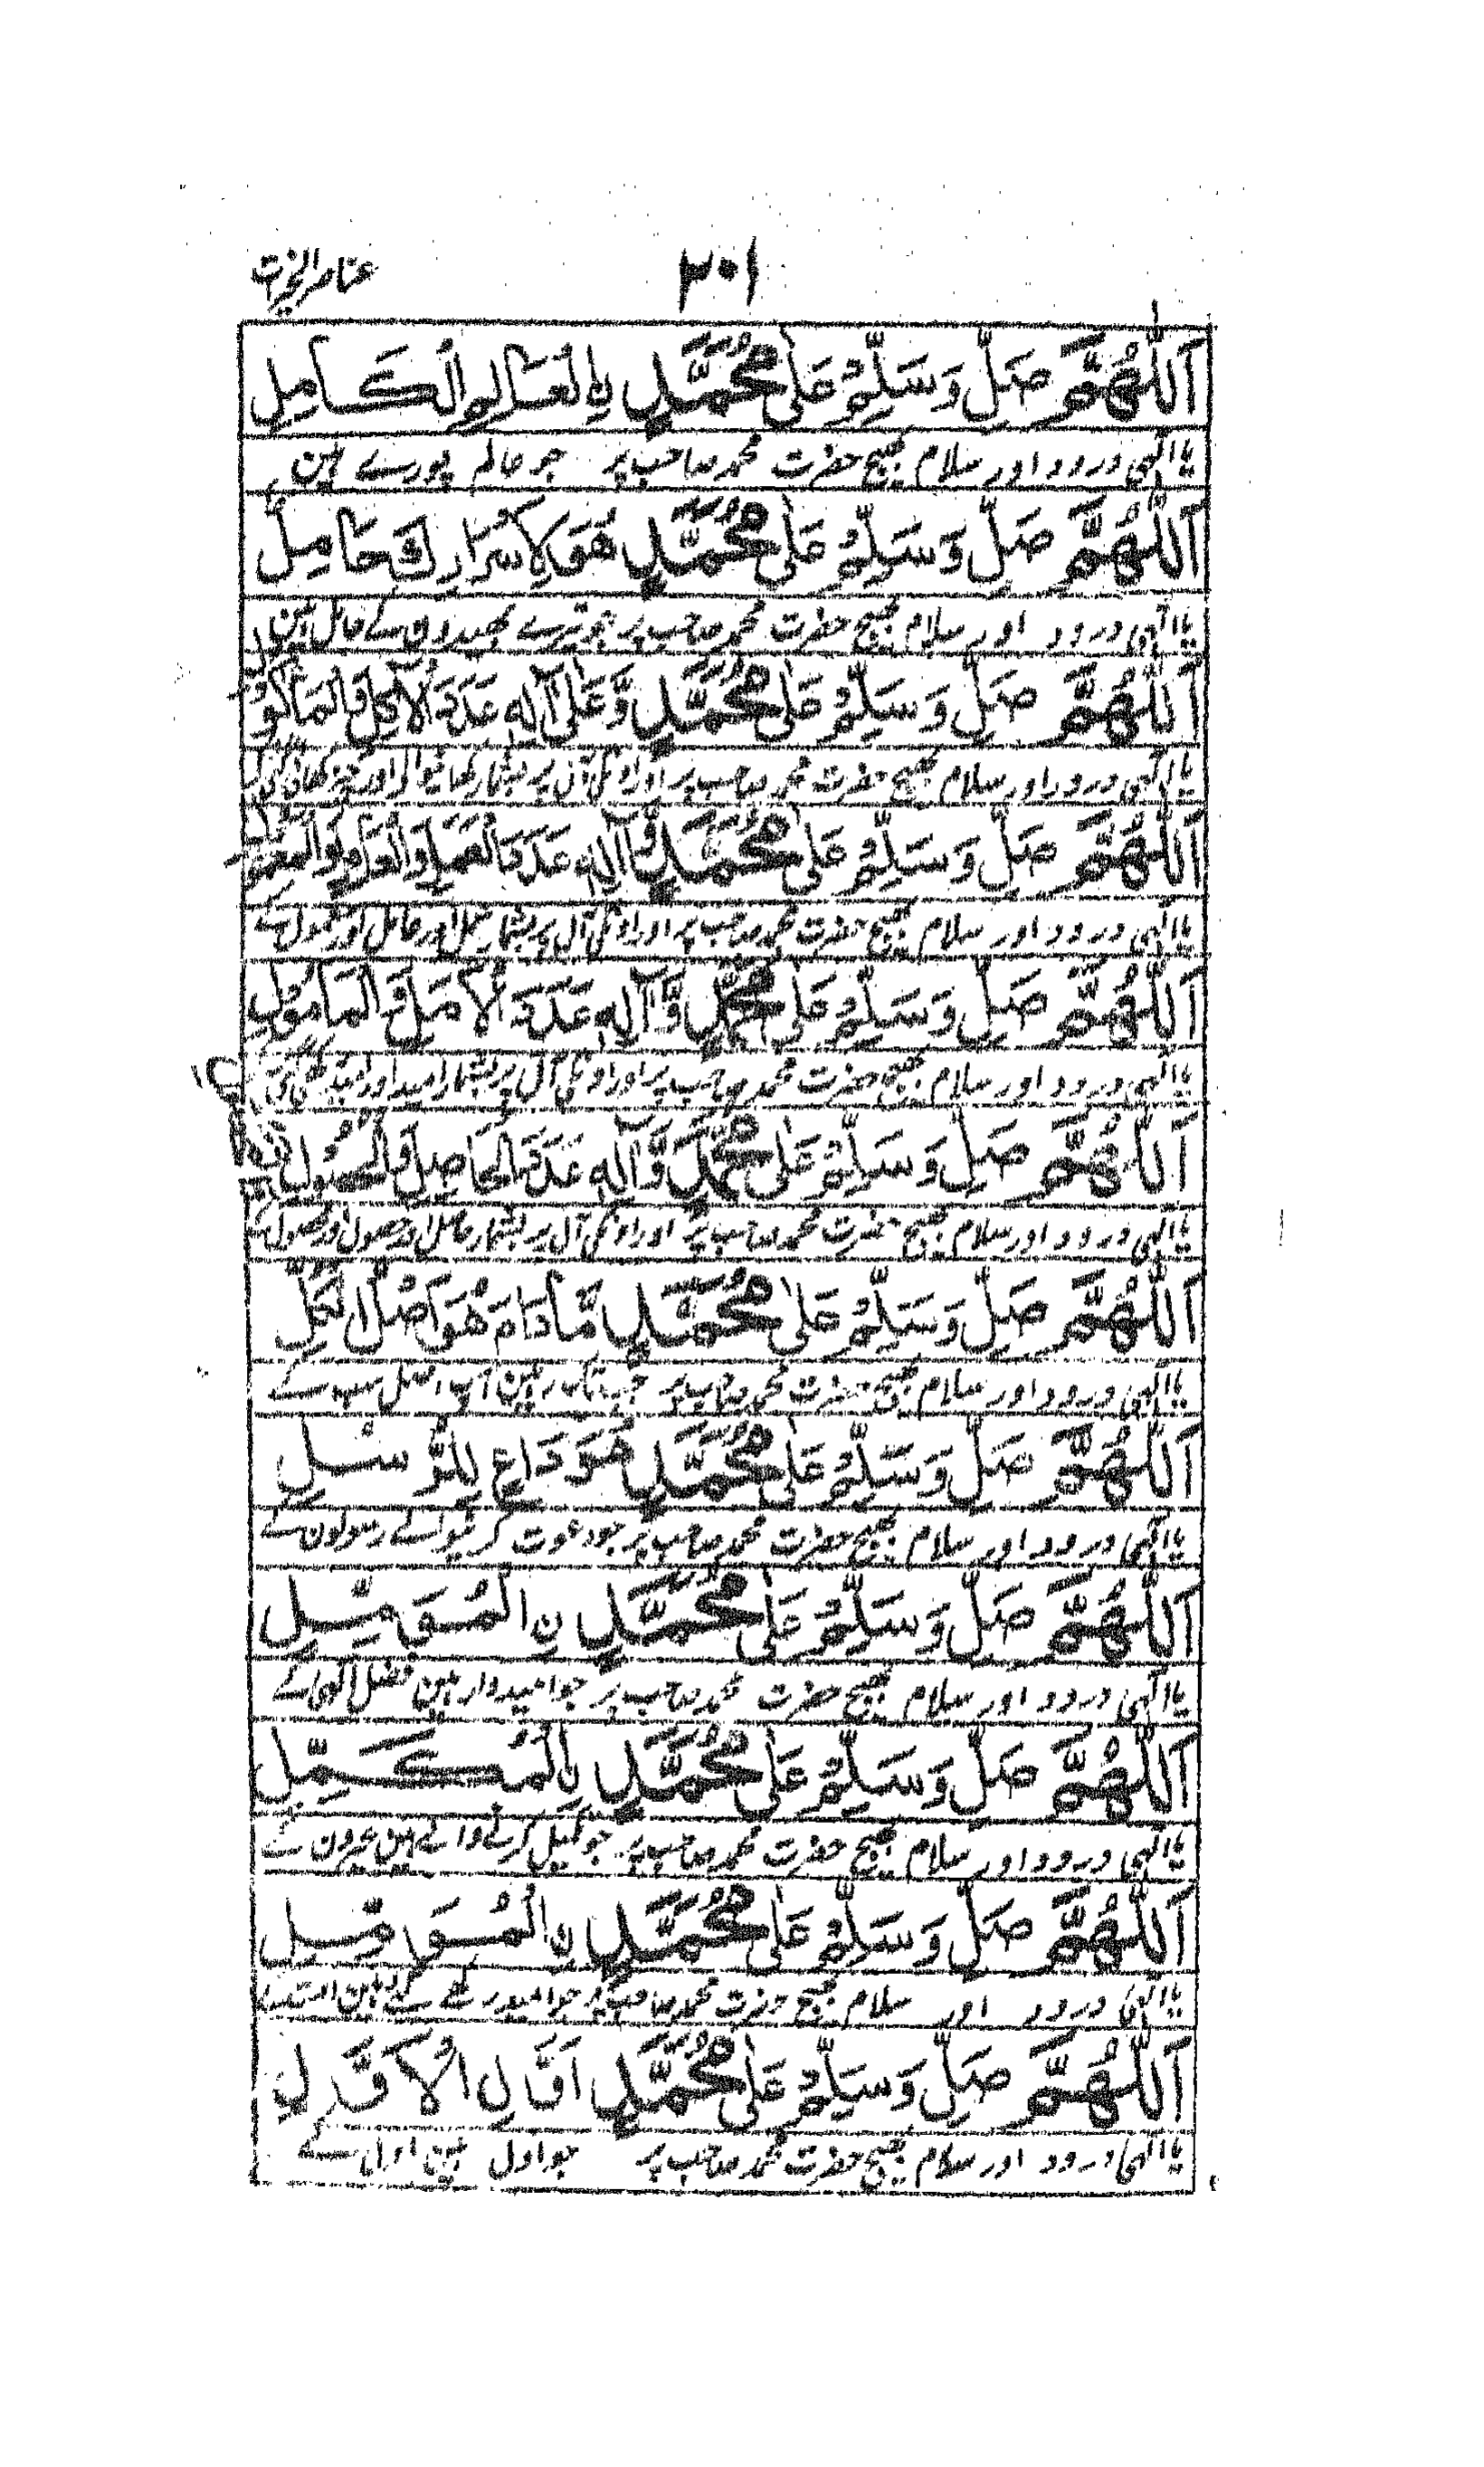 عناصر الخیرات
۳۰۱
اَللّٰهُمَّ صَلِّ وَسَلِّمْ عَلٰى مُحَمَّدٍ نِ الْعَالِمِ الْكَامِلِ
یا الٰہی درود اور سلام بھیج حضرت محمد صاحب پر جو عالم پورے ہین
اَللّٰهُمَّ صَلِّ وَسَلِّمْ عَلٰى مُحَمَّدٍ هُوَ لِاَسْرَارِكَ حَامِلٌ
یا الٰہی درود اور سلام بھیج حضرت محمد صاحب پر جو تیرے بھیدون کے حامل ہین
اَللّٰهُمَّ صَلِّ وَسَلِّمْ عَلٰى مُحَمَّدٍ وَّعَلٰى اٰلِهٖ عَدَدَ الْاٰكِلِ وَالْمَاكُوْلِ
یا الٰہی درود اور سلام بھیج حضرت محمد صاحب پر اور اونکی آل پر بشمار کھانیوالی اور چیز کھائی گئی
اَللّٰهُمَّ صَلِّ وَسَلِّمْ عَلٰى مُحَمَّدٍ وَّاٰلِهٖ عَدَدَ الْعَمَلِ وَالْعَامِلِ وَالْمَعْمُوْلِ
یا الٰہی درود اور سلام بھیج حضرت محمد صاحب پر اور اونکی آل پر بشمار عمل اور عامل اور معمول کے
اَللّٰهُمَّ صَلِّ وَسَلِّمْ عَلٰى مُحَمَّدٍ وَّاٰلِهٖ عَدَدَ الْاَمَلِ وَالْمَامُوْلِ
یا الٰہی درود اور سلام بھیج حضرت محمد صاحب پر اور اونکی آل پر بشمار امید اور امید
اَللّٰهُمَّ صَلِّ وَسَلِّمْ عَلٰى مُحَمَّدٍ وَّاٰلِهٖ عَدَدَ الْحَاصِلِ وَالْحُصُوْلِ
یا الٰہی درود اور سلام بھیج حضرت محمد صاحب پر اور اونکی آل پر بشمار حاصل اور حصول اور محصول
اَللّٰهُمَّ صَلِّ وَسَلِّمْ عَلٰى مُحَمَّدٍ مَّادَامَ هُوَ اَصْلُ الْكُلِّ
یا الٰہی درود اور سلام بھیج حضرت محمد صاحب پر جب تک رہین آپ اصل سب کے
اَللّٰهُمَّ صَلِّ وَسَلِّمْ عَلٰى مُحَمَّدٍ هُوَ دَاعٍ لِلرُّسُلِ
یا الٰہی درود اور سلام بھیج حضرت محمد صاحب پر جو دعوت کرنیوالے رسولون کے
اَللّٰهُمَّ صَلِّ وَسَلِّمْ عَلٰى مُحَمَّدٍ نِ الْمُؤَمِّلِ
یا الٰہی درود اور سلام بھیج حضرت محمد صاحب پر جو امیدوار ہین فضل الٰہی کے
اَللّٰهُمَّ صَلِّ وَسَلِّمْ عَلٰى مُحَمَّدٍ نِ الْمُكَمِّلِ
یا الٰہی درود اور سلام بھیج حضرت محمد صاحب پر جو تکمیل کرنے والے ہین غیرون کے
اَللّٰهُمَّ صَلِّ وَسَلِّمْ عَلٰى مُحَمَّدٍ نِ الْمُؤَمَّلِ
یا الٰہی درود اور سلام بھیج حضرت محمد صاحب پر جو امید
اَللّٰهُمَّ صَلِّ وَسَلِّمْ عَلٰى مُحَمَّدٍ اَوَّلِ الْاَوَّلِ
یا الٰہی درود اور سلام بھیج حضرت محمد صاحب پر جو اول ہین اول کے